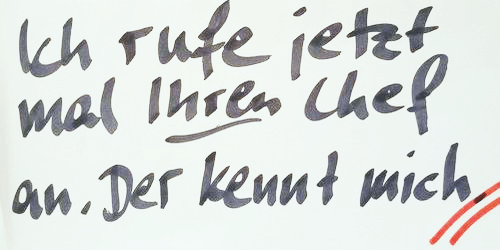 Ich rufe jetzt
mal Ihren Chef
an. Der kennt mich